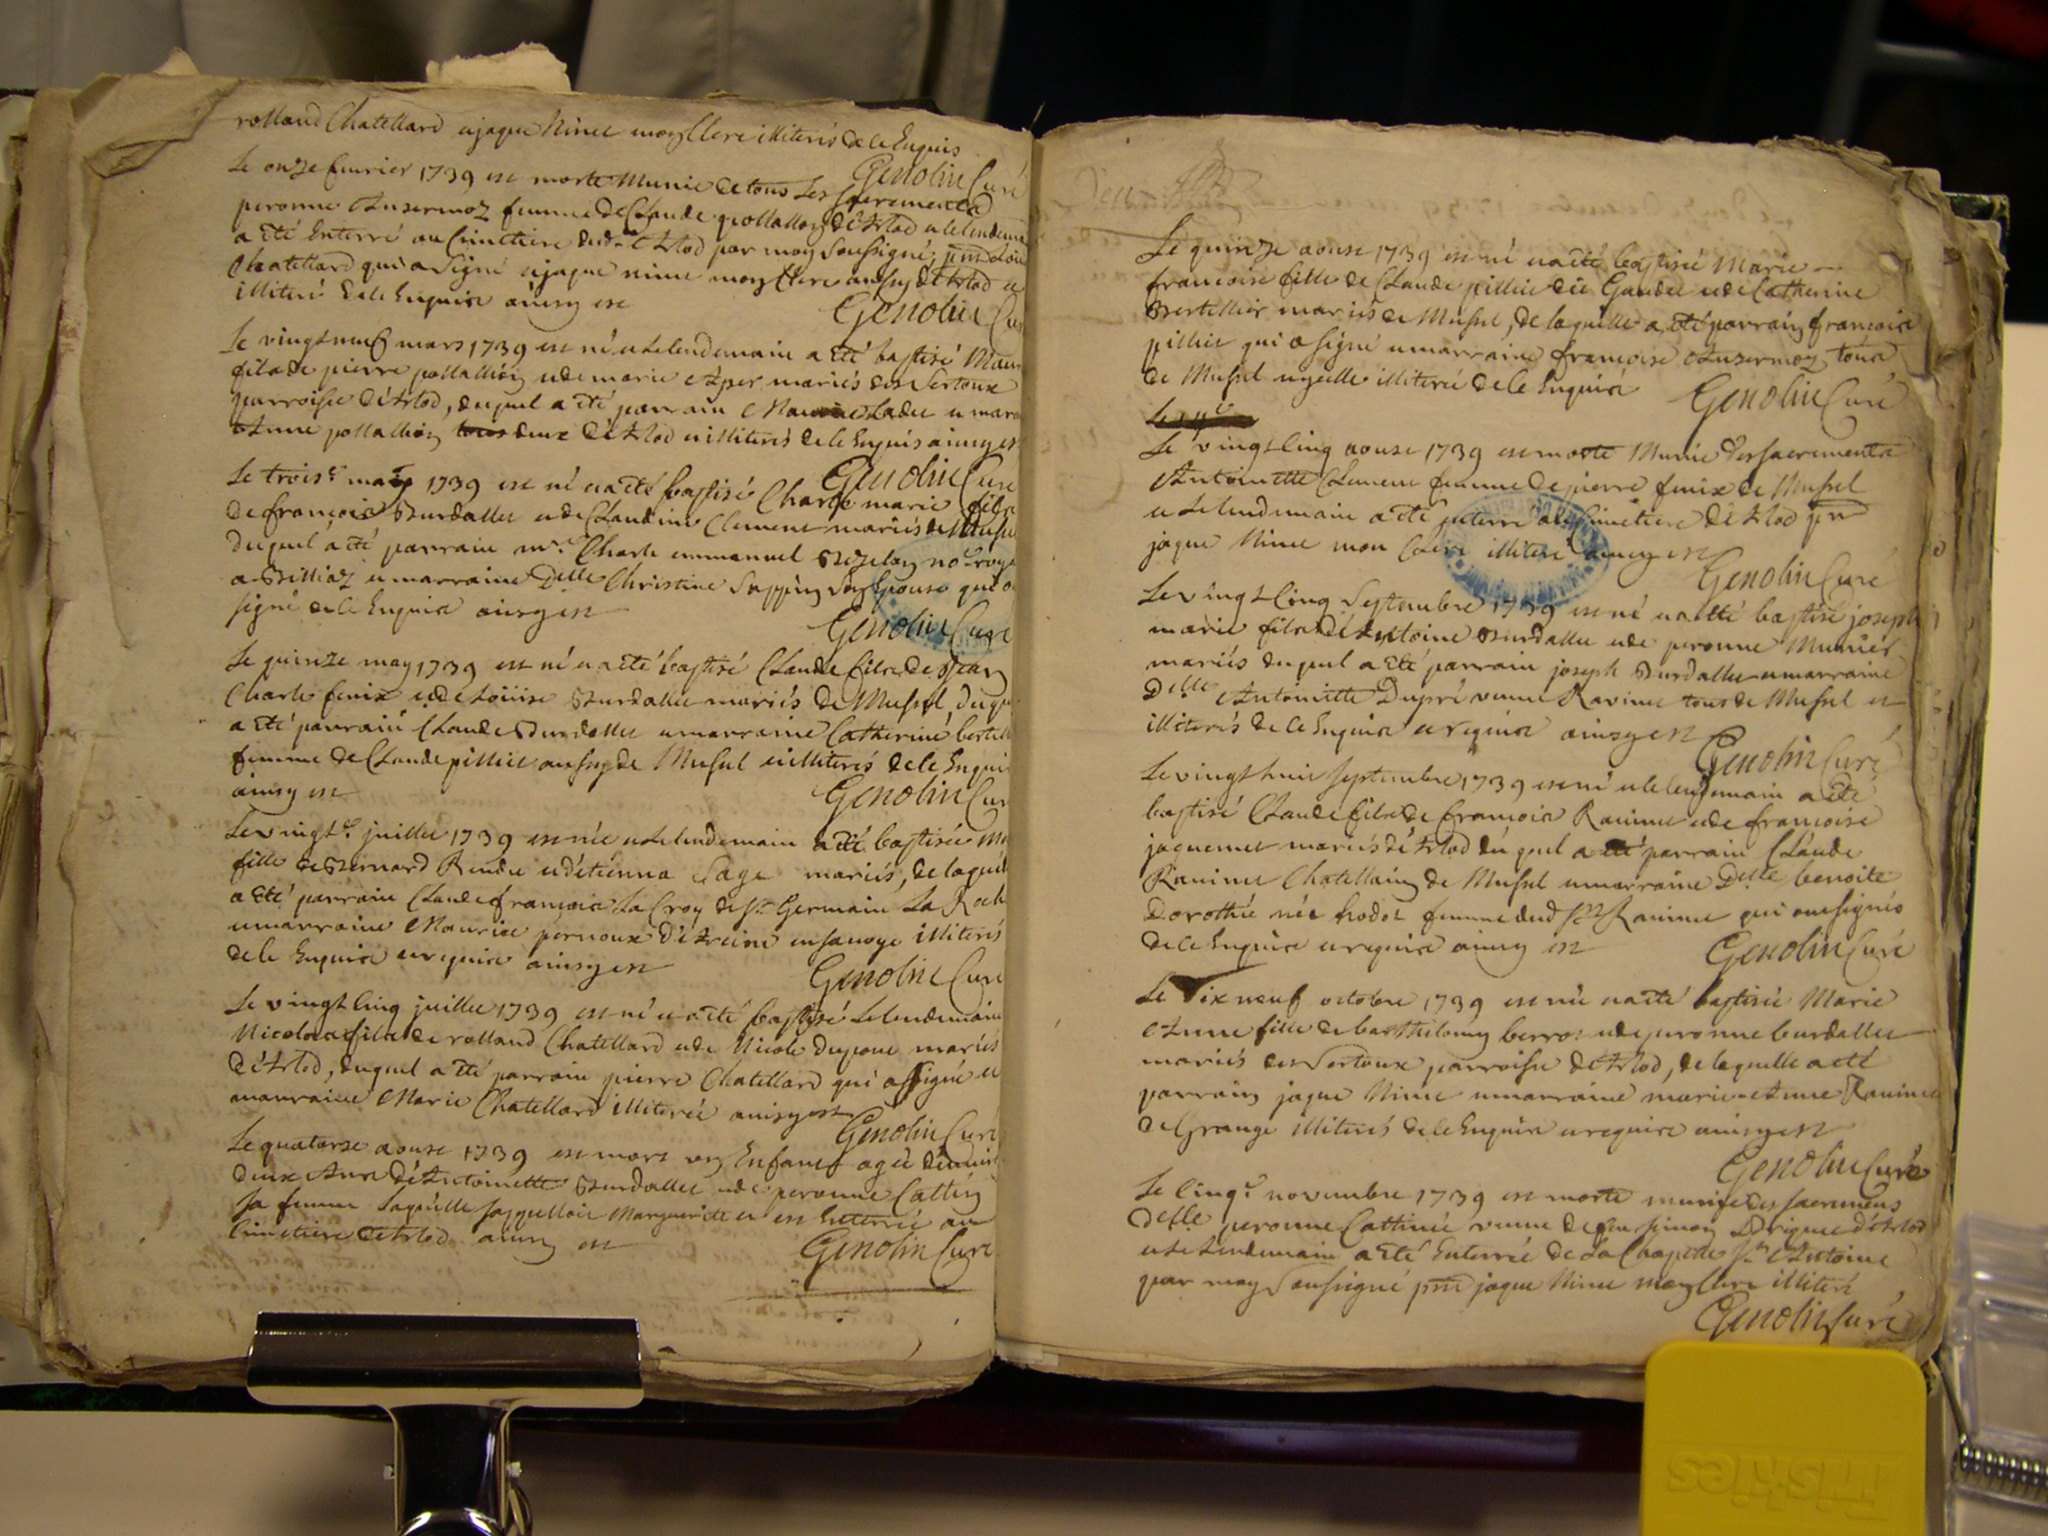 rolland Chatellard et jaque Ninet moy Clerc illiterés de ce Enquis
Genolin Curé
Le onze fevrier 1739 est morte Munie de tous Les Sacrements
peronne Ansermoz femme de Claude pollallion d'Arlod et le lendemain
a été Enterré au Cimetiere dud. Arlod par moy Soussigné, pnt
Chatellard qui a signé et jaque ninet moy Clerc aussy d'Arlod et
illiteré de ce Enquis ainsy est
Genolin Cu
Le vingt neuf mars 1739 est né et Le lendemain a été baptisé
fils de pierre pollallion et de marie mariés des Sertoux
parroisse d'Arlod, duquel a été parrain Ladet et mara
Anne pollallion deux d'Arlod et illiterés de ce Enquis ainsy est
Genolin Curé
Le trois.e may 1739 est né et a été baptisé Charle marie fils
de françois Burdallet et de Claudine Clement mariés de Mussel
duquel a été parrain m.r Charle emmanuel no.re roya
a Billiaz et marraine Delle Christine Son Epouse qui o
signé de ce Enquis ainsy est
Genolin Curé
Le quinze may 1739 est né et a été baptisé Claude fils de Jean
Charle fenix et de Loüise Burdallet mariés de Mussel, duqu
a été parrain Claude Burdallet et marraine Catherine bertell
femme de Claude pilliet aussy de Mussel et illiterés de ce Enquis
ainsy est
Genolin Cur
Le vingt.e juillet 1739 est née et Le lendemain a été baptisée
fille de Bernard Rendu et d'étienna Sage mariés, de laquelle
a été parrain Claude françois La Croy de St. Germain La
et marraine Maurise pernoux d' en savoye illiterés
de ce Enquis et requis ainsy est
Genolin Curé
Le vingt Cinq juillet 1739 est né et a été baptisé Le lendemain
Nicolas fils de rolland Chatellard et de Nicole Dupont mariés
d'Arlod, duquel a été parrain pierre Chatellard qui a signé et
marraine Marie Chatellard illiterée ainsy est
Genolin Curé
Le quatorze aoust 1739 est mort un Enfant agée d'environ
deux Ans d'Antoinette Burdallet et de peronne Cattin
sa femme Laquelle sappelloit Marguerite et est Enterrée au
Cimetiere d'Arlod ainsy est
Genolin Curé
Le quinze aoust 1739 est né et a été baptisé Marie
françoise fille de Claude pilliet dit Gaudet et de Catherine
Bertellier mariés de Mussel, de laquelle a été parrain françois
pilliet qui a signé et marraine françoise Ansermoz tous
de Mussel et ycelle illiterée de ce Enquis
Genolin Curé
Le vingt Cinq aoust 1739 est morte Munie des sacrements
Antoinette Clement femme de pierre fenix de Mussel
et Le lendemain a été enterré au Cimetiere d'Arlod pnt
jaque Ninet mon Clerc illiteré ainsy est
Genolin Curé
Le vingt Cinq Septembre 1739 est né et a été baptisé joseph
marie fils d'Antoine Burdallet et de peronne Munier
mariés duquel a été parrain joseph Burdallet et marraine
Delle Antoinette Dupré veuve Ravinet tous de Mussel et
illiterés de ce Enquis et requis ainsy est
Genolin Curé
Le vingt huit Septembre 1739 est né et le lendemain a été
baptisé Claude fils de françois Ravinet et de françoise
jaquemet mariés d'Arlod duquel a été parrain Claude
Ravinet Chatellain de Mussel et marraine Delle benoite
Dorothée née hodot femme dud. Sr. Ravinet qui ont signés
de ce Enquis et requis ainsy est
Genolin Curé
Le Dix neuf octobre 1739 est née et a été baptisée Marie
Anne fille de barthelemy berrot et de peronne burdallet
mariés des Sertoux parroisse d'Arlod, de laquelle a été
parrain jaque Ninet et marraine marie Anne Ravinet
de Grange illiterés de ce Enquis et requis ainsy est
Genolin Curé
Le Cinq.e novembre 1739 est morte munie des sacremens
Delle peronne Cattinée veuve de feu Simon d'Arlod
et Le Lendemain a été Enterrée de La Chapelle St. Antoine
par moy Soussigné pnt jaque Ninet moy Clerc illiteré
Genolin Curé
Triskies